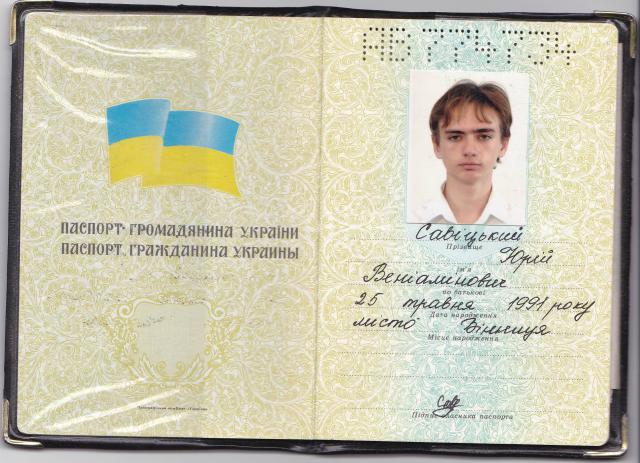 ПАСПОРТ ГРОМАДЯНИНА УКРАЇНИ
ПАСПОРТ ГРАЖДАНИНА УКРАИНЫ
АВ774734
Савіцький
Прізвище
Юрій
Ім'я
Веніамінович
по батькові
25 травня 1991 року
Дата народження
місто Вінниця
Місце народження
Підпис власника паспорта